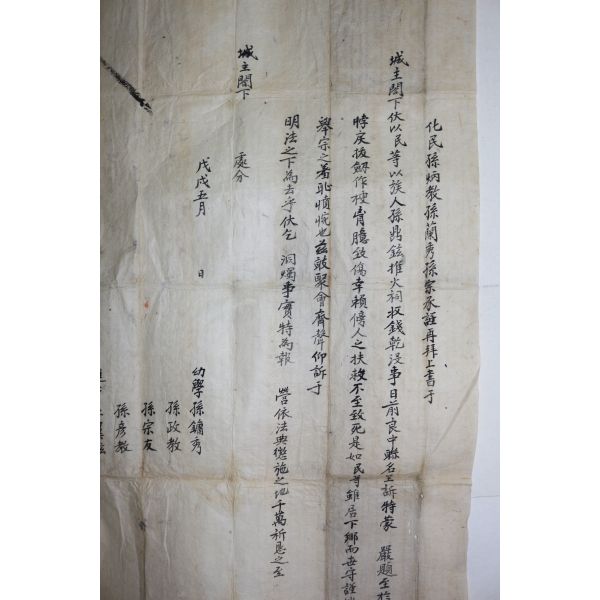 化民孫炳教孫蘭秀孫宗承謹再拜上書于
城主閤下伏以民等以族人孫鼎鉉推火祠收錢乾沒事日前良中聯名呈訴特蒙 嚴題至於
悖戾拔劒作梗胷臆致傷幸賴傍人之扶救不至致死是如民等雖居下鄕而世守謹
擧宗之羞恥憤惋也玆敢聚會齊聲仰訴于
明法之下爲去乎伏乞 洞燭事實特爲報 營依法典懲施之地千萬祈恳之至
處分
城主閤下
戊戌五月 日
幼學孫鏞秀
孫政教
孫宗友
孫彦教